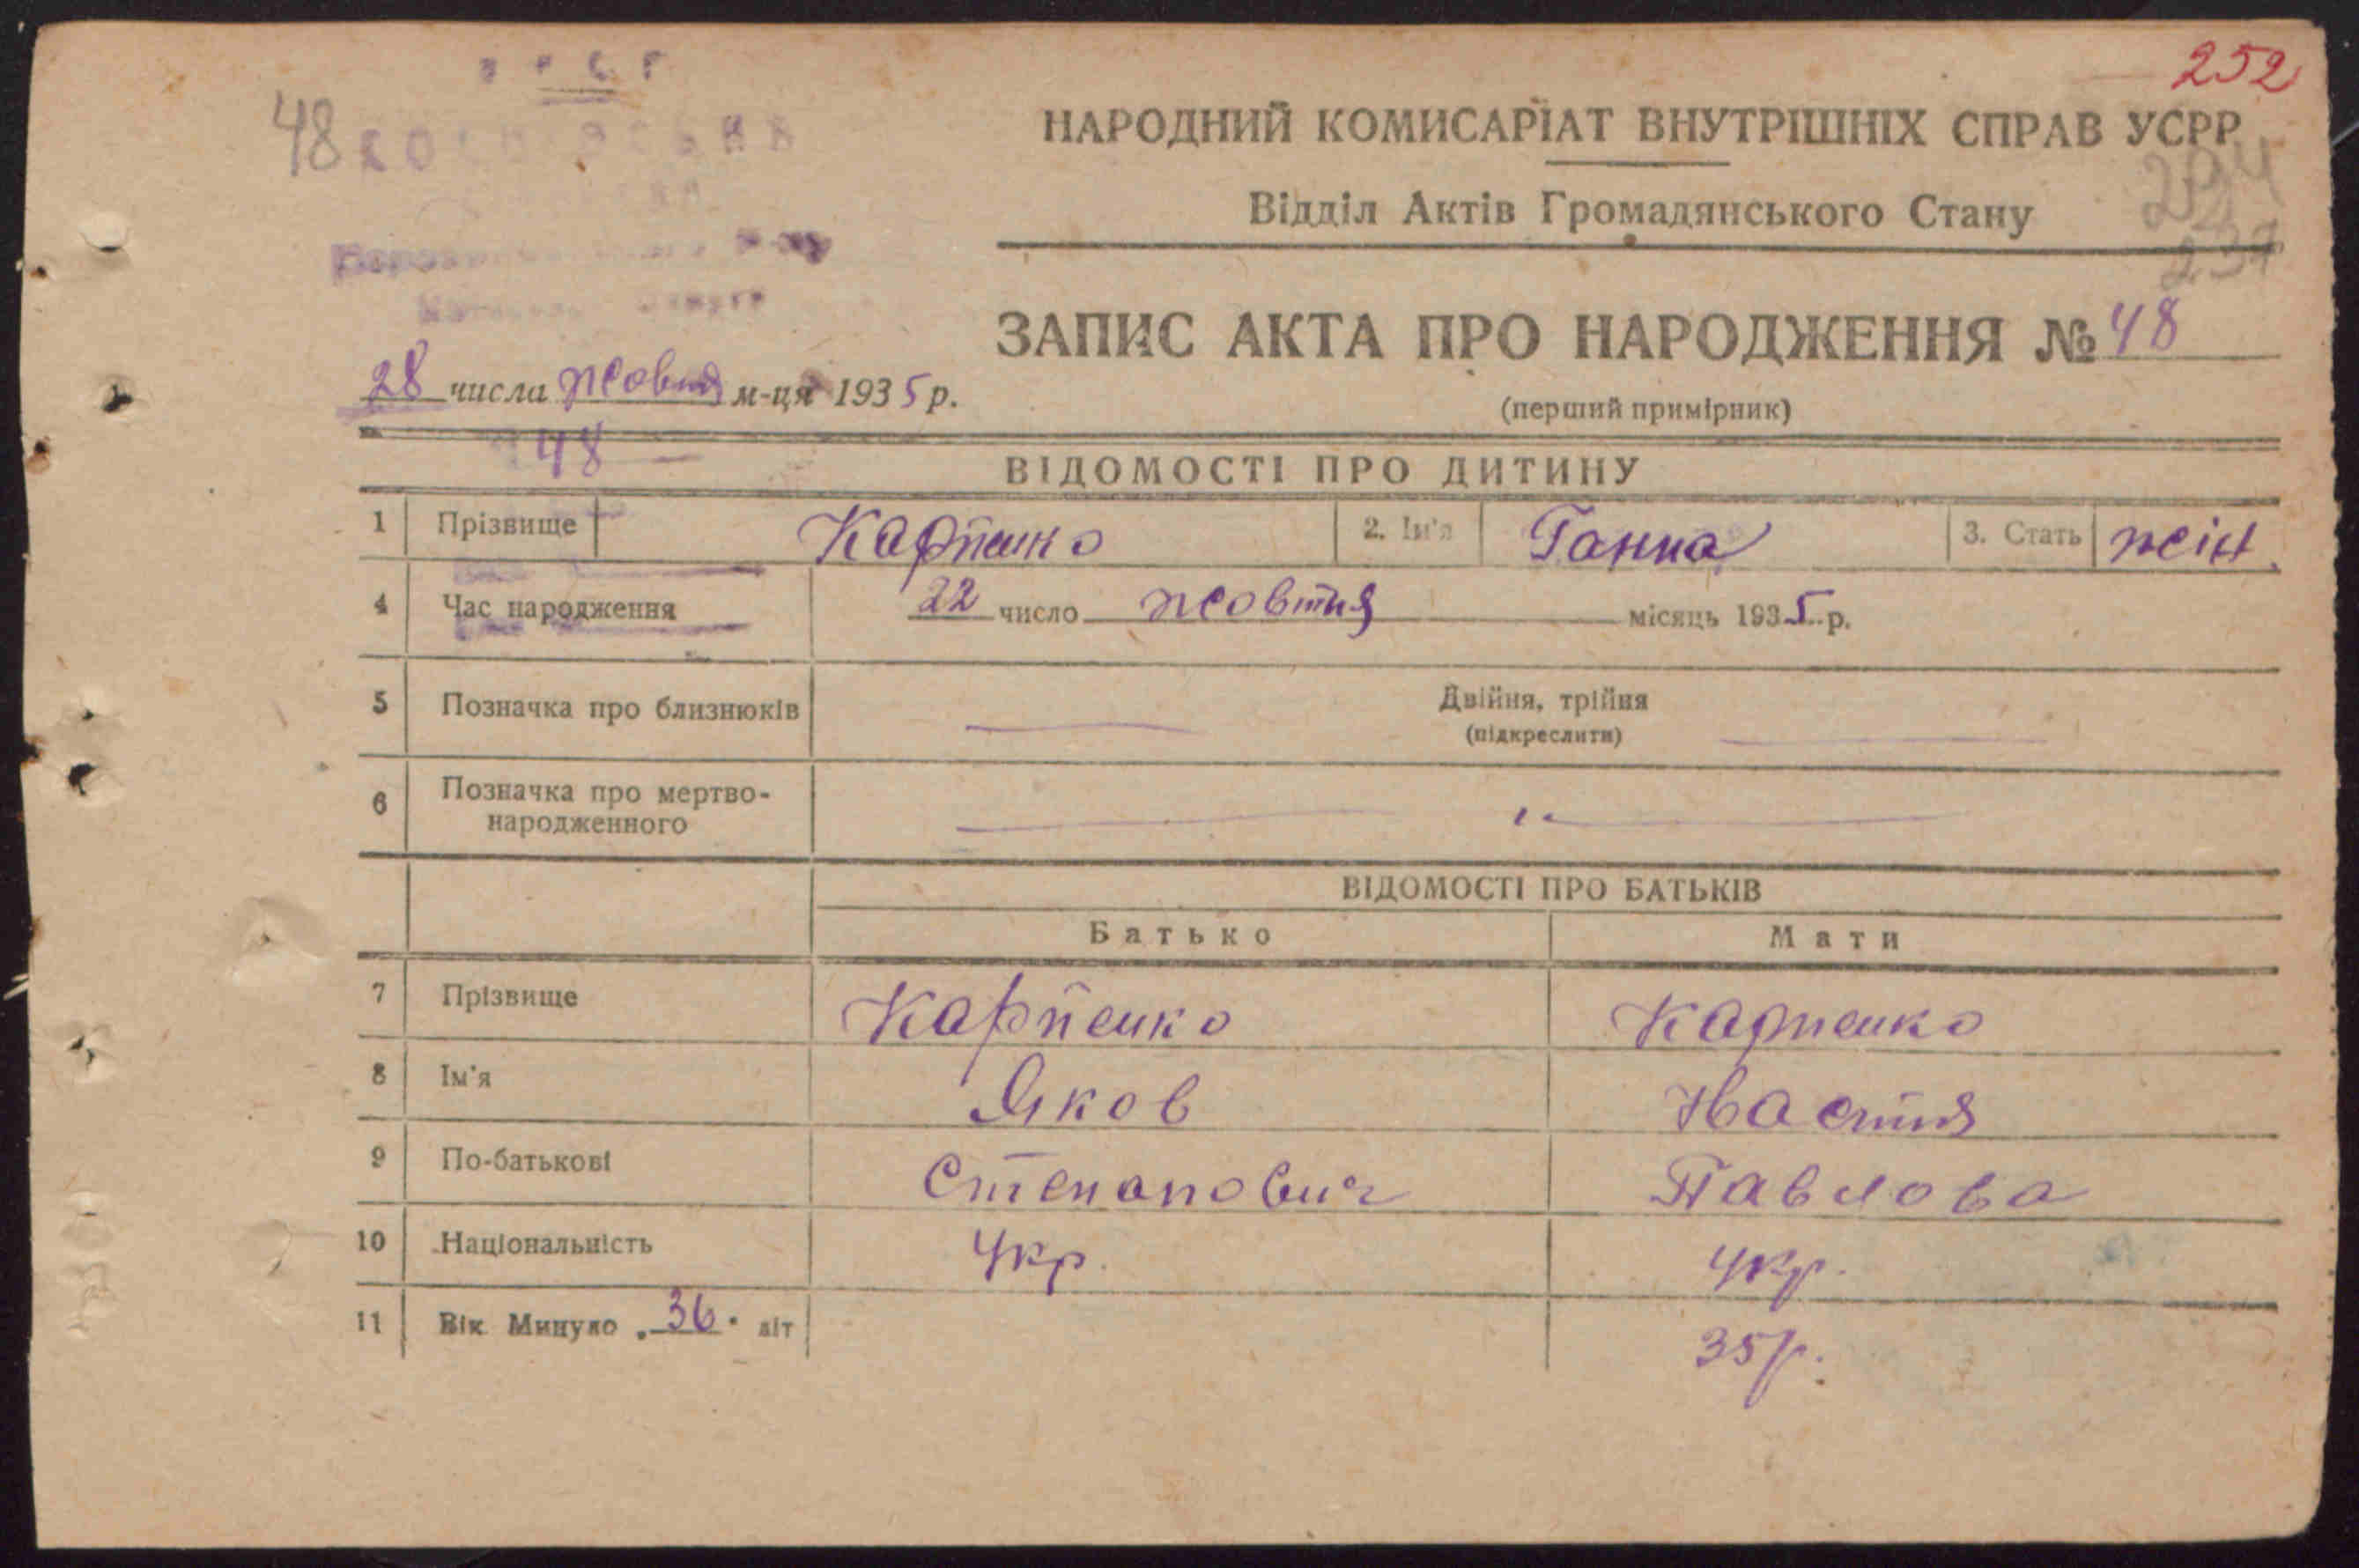 252
48
НАРОДНИЙ КОМИСАРІАТ ВНУТРІШНІХ СПРАВ УСРР
Відділ Актів Громадянського Стану
234
ЗАПИС АКТА ПРО НАРОДЖЕННЯ № 48
28 числа жовтня м-ця 1935 р.
(перший примірник)
48
ВІДОМОСТІ ПРО ДИТИНУ
1 Прізвище Карпенко 2. Ім'я Ганна 3. Стать жін.
4 Час народження 22 число жовтня місяць 1935 р.
5 Позначка про близнюків Двійня, трійня
(підкреслити)
6 Позначка про мертво-
народженного
ВІДОМОСТІ ПРО БАТЬКІВ
Батько Мати
7 Прізвище Карпенко Карпенко
8 Ім'я Яков Настя
9 По-батькові Степанович Павлова
10 Національність Укр. Укр.
11 Вік Минуло „36" літ 35 р.